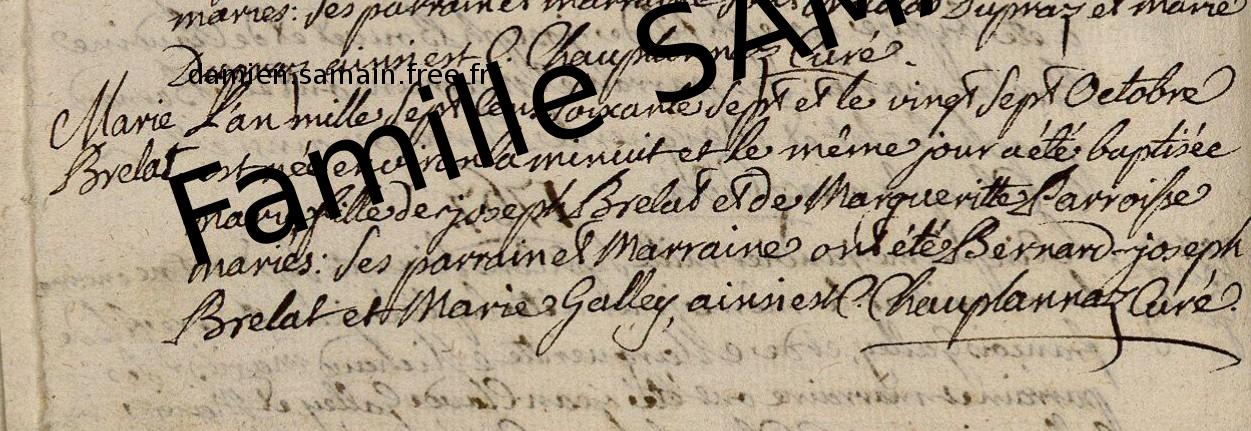 mariés: ses parrain et marraine Dupraz et marie
Dupraz ainsi est C. Chauplannaz Curé.
damien.samain.free.fr
Famille SAM
Marie L'an mille sept cent soixante sept et le vingt sept Octobre
Brelat est née environ la minuit et le même jour a été baptisée
marie fille de joseph Brelat et de Margueritte Parroisse
mariés: ses parrain et Marraine ont été Bernard-joseph
Brelat et Marie Galley, ainsi est C. Chauplannaz Curé.